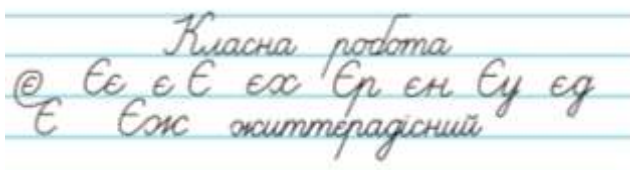 Класна робота
є Єє є Є єх Єр єн Єу єд
Є Єж життєрадісний